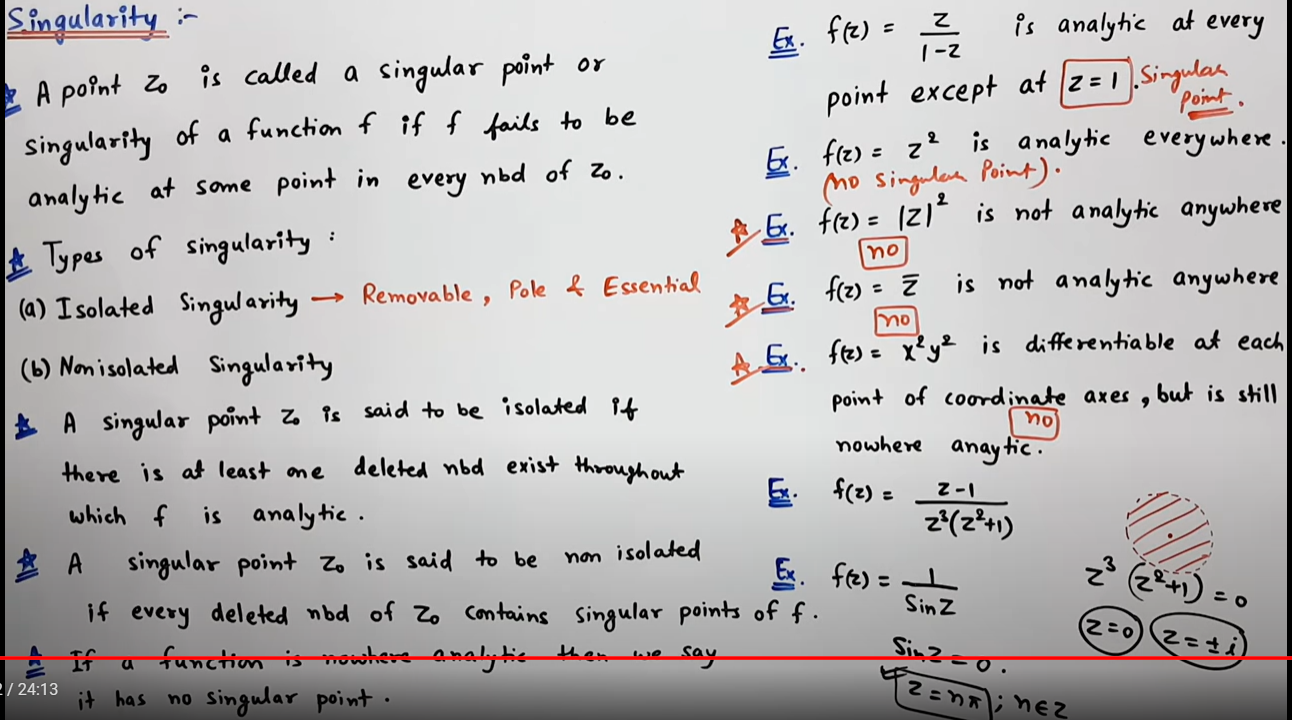 Singularity :-
A point z₀ is called a singular point or
singularity of a function f if f fails to be
analytic at some point in every nbd of z₀.
Types of singularity :
(a) Isolated Singularity → Removable, Pole & Essential
(b) Nonisolated Singularity
A singular point z₀ is said to be isolated if
there is at least one deleted nbd exist throughout
which f is analytic.
A singular point z₀ is said to be non isolated
if every deleted nbd of z₀ contains singular points of f.
If a function is nowhere analytic then we say
it has no singular point.
2 / 24:13
Ex. f(z) = z/(1-z) is analytic at every
point except at z = 1. Singular
Point.
Ex. f(z) = z² is analytic everywhere.
(no singular Point).
Ex. f(z) = |z|² is not analytic anywhere
no
Ex. f(z) = z̅ is not analytic anywhere
no
Ex. f(z) = x²y² is differentiable at each
point of coordinate axes, but is still
no
nowhere anaytic.
Ex. f(z) = (z-1)/(z³(z²+1))
Ex. f(z) = 1/Sinz
z³(z²+1) = 0
z=0 z=±i
Sinz = 0.
z = nπ ; n∈z